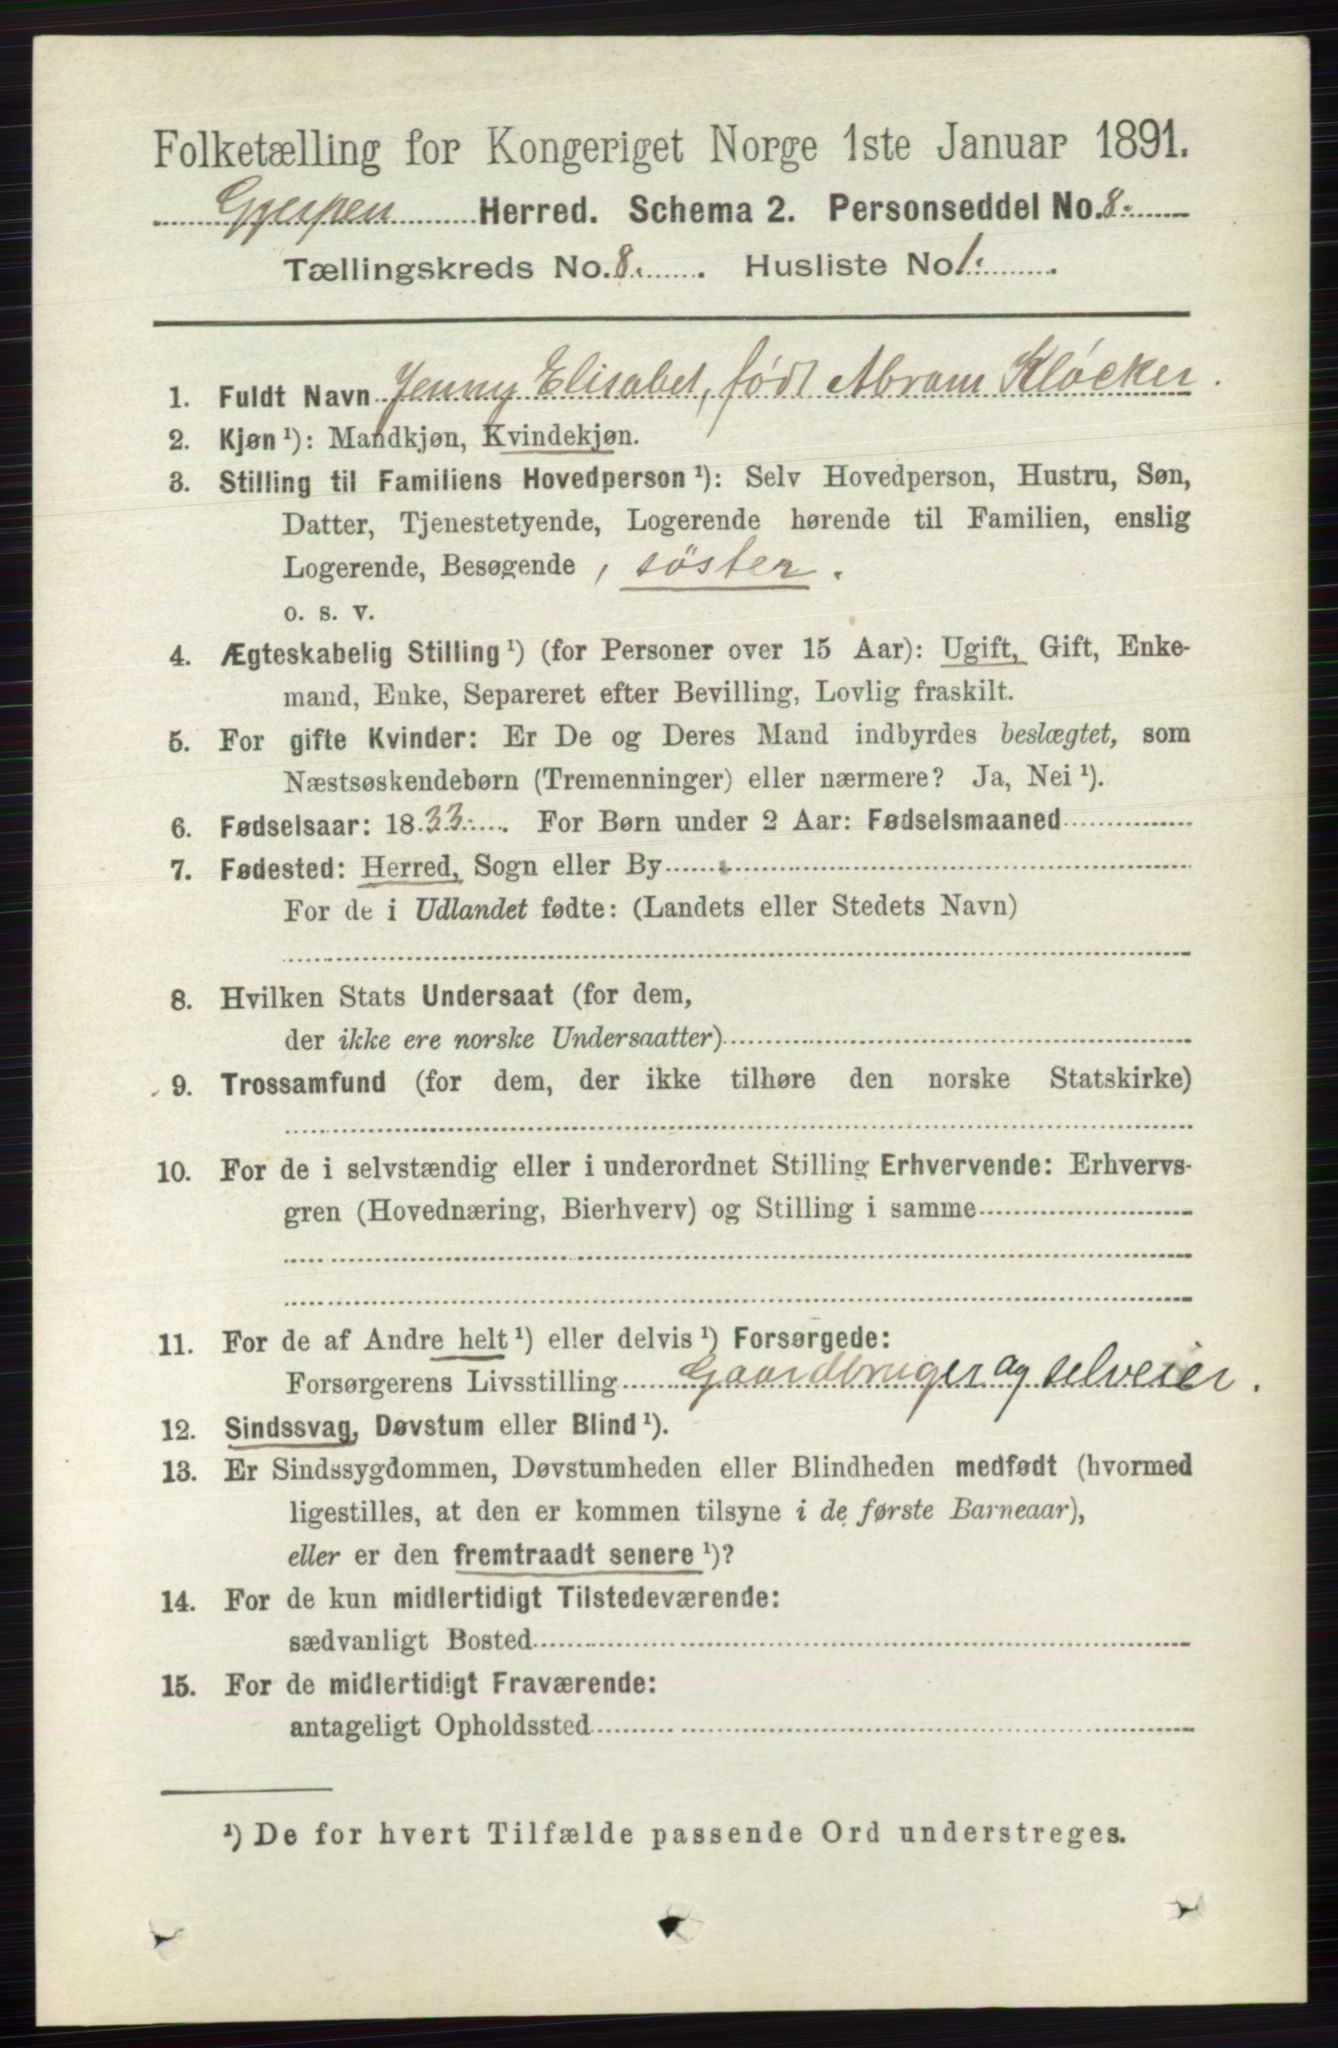 Folketælling for Kongeriget Norge 1ste Januar 1891.
Gjerpen Herred. Schema 2. Personseddel No. 8.
Tællingskreds No. 8. Husliste No. 1.
1. Fuldt Navn Jenny Elisabet, født Abram Kløcker.
2. Kjøn ¹): Mandkjøn, Kvindekjøn.
3. Stilling til Familiens Hovedperson ¹): Selv Hovedperson, Hustru, Søn,
Datter, Tjenestetyende, Logerende hørende til Familien, enslig
Logerende, Besøgende, söster.
o. s. v.
4. Ægteskabelig Stilling ¹) (for Personer over 15 Aar): Ugift, Gift, Enke-
mand, Enke, Separeret efter Bevilling, Lovlig fraskilt.
5. For gifte Kvinder: Er De og Deres Mand indbyrdes beslægtet, som
Næstsøskendebørn (Tremenninger) eller nærmere? Ja, Nei ¹).
6. Fødselsaar: 1833. For Børn under 2 Aar: Fødselsmaaned
7. Fødested: Herred, Sogn eller By
For de i Udlandet fødte: (Landets eller Stedets Navn)
8. Hvilken Stats Undersaat (for dem,
der ikke ere norske Undersaatter)
9. Trossamfund (for dem, der ikke tilhøre den norske Statskirke)
10. For de i selvstændig eller i underordnet Stilling Erhvervende: Erhvervs-
gren (Hovednæring, Bierhverv) og Stilling i samme
11. For de af Andre helt ¹) eller delvis ¹) Forsørgede:
Forsørgerens Livsstilling Gaardbruger og selveier.
12. Sindssvag, Døvstum eller Blind ¹).
13. Er Sindssygdommen, Døvstumheden eller Blindheden medfødt (hvormed
ligestilles, at den er kommen tilsyne i de første Barneaar),
eller er den fremtraadt senere ¹)?
14. For de kun midlertidigt Tilstedeværende:
sædvanligt Bosted
15. For de midlertidigt Fraværende:
antageligt Opholdssted
¹) De for hvert Tilfælde passende Ord understreges.